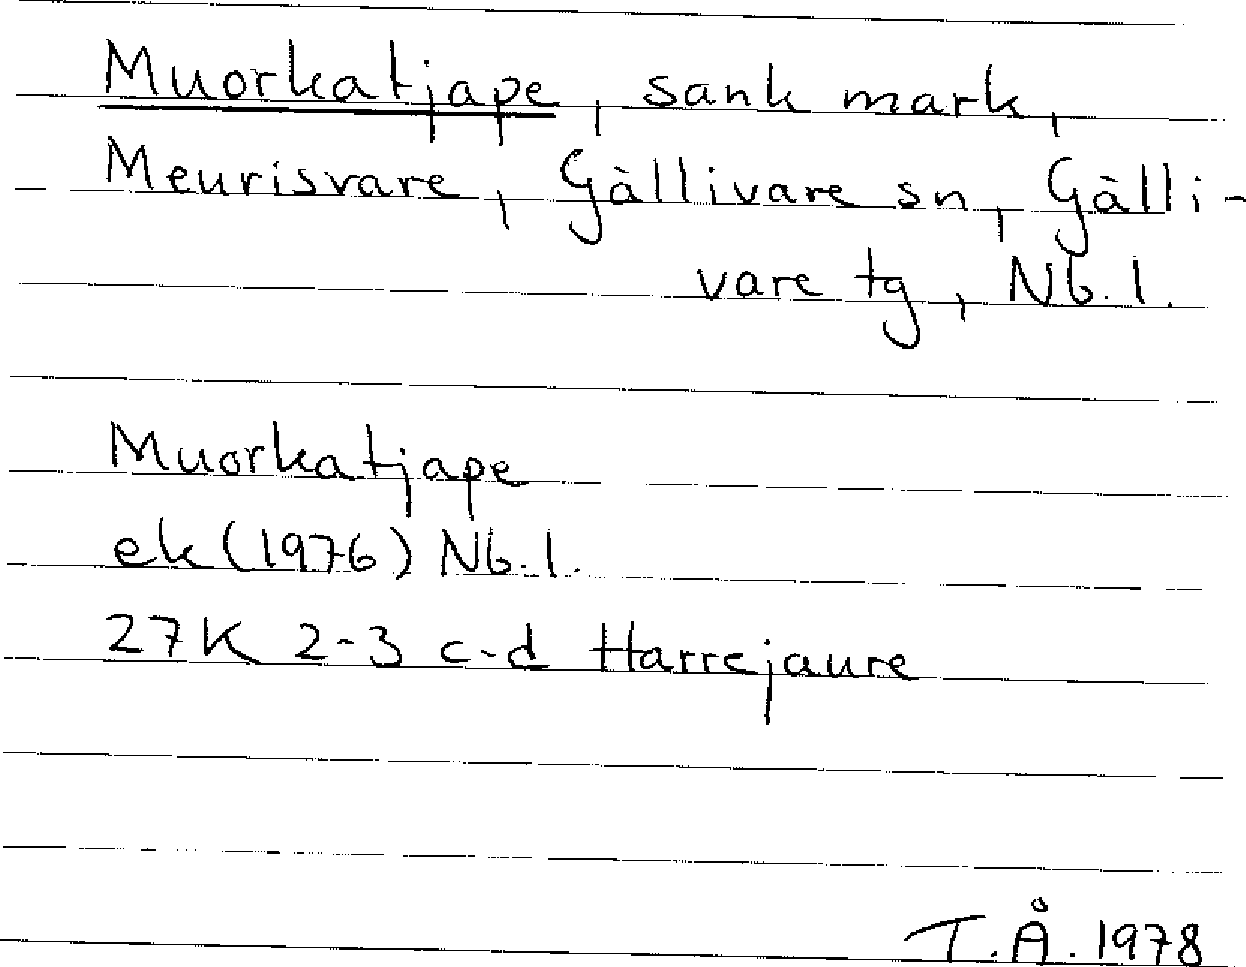 Muorkatjape, sank mark,
Meurisvare, Gällivare sn, Gälli-
vare tg, Nb. l.
Muorkatjape
ek (1976) Nb. l.
27K 2-3 c-d Harrejaure
T.Å. 1978